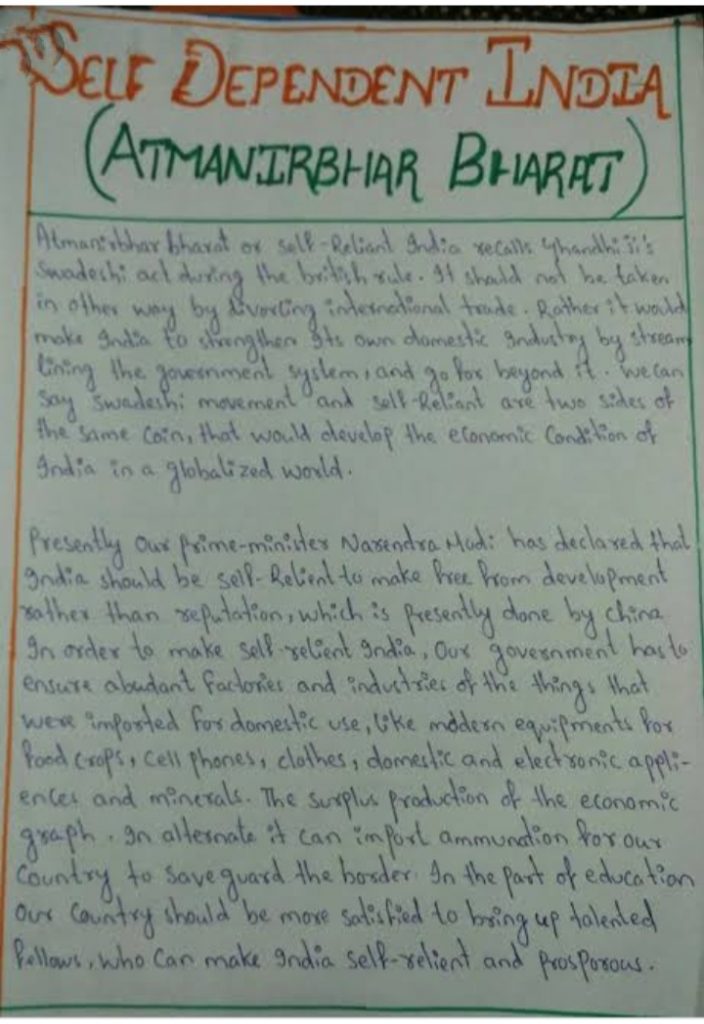 SELF DEPENDENT INDIA
(ATMANIRBHAR BHARAT)
Atmanirbhar bharat or self-Reliant India recalls Ghandhi Ji's
Swadeshi act during the british rule. It should not be taken
in other way by divorcing international trade. Rather it would
make India to strengthen its own domestic industry by stream
lining the government system, and go for beyond it. We can
say swadeshi movement and self-Reliant are two sides of
the same coin, that would develop the economic Condition of
India in a globalized world.
Presently our prime-minister Narendra Modi has declared that
India should be self-Relient to make free from development
rather than reputation, which is presently done by china
In order to make self-relient India, Our government has to
ensure abudant factories and industries of the things that
were imported for domestic use, like modern equipments for
food crops, cell phones, clothes, domestic and electronic appli-
ences and minerals. The surplus production of the economic
graph. In alternate it can import ammundion for our
Country to save guard the border. In the part of education
Our Country should be more satisfied to bring up talented
fellows, who can make India self-relient and prosporous.